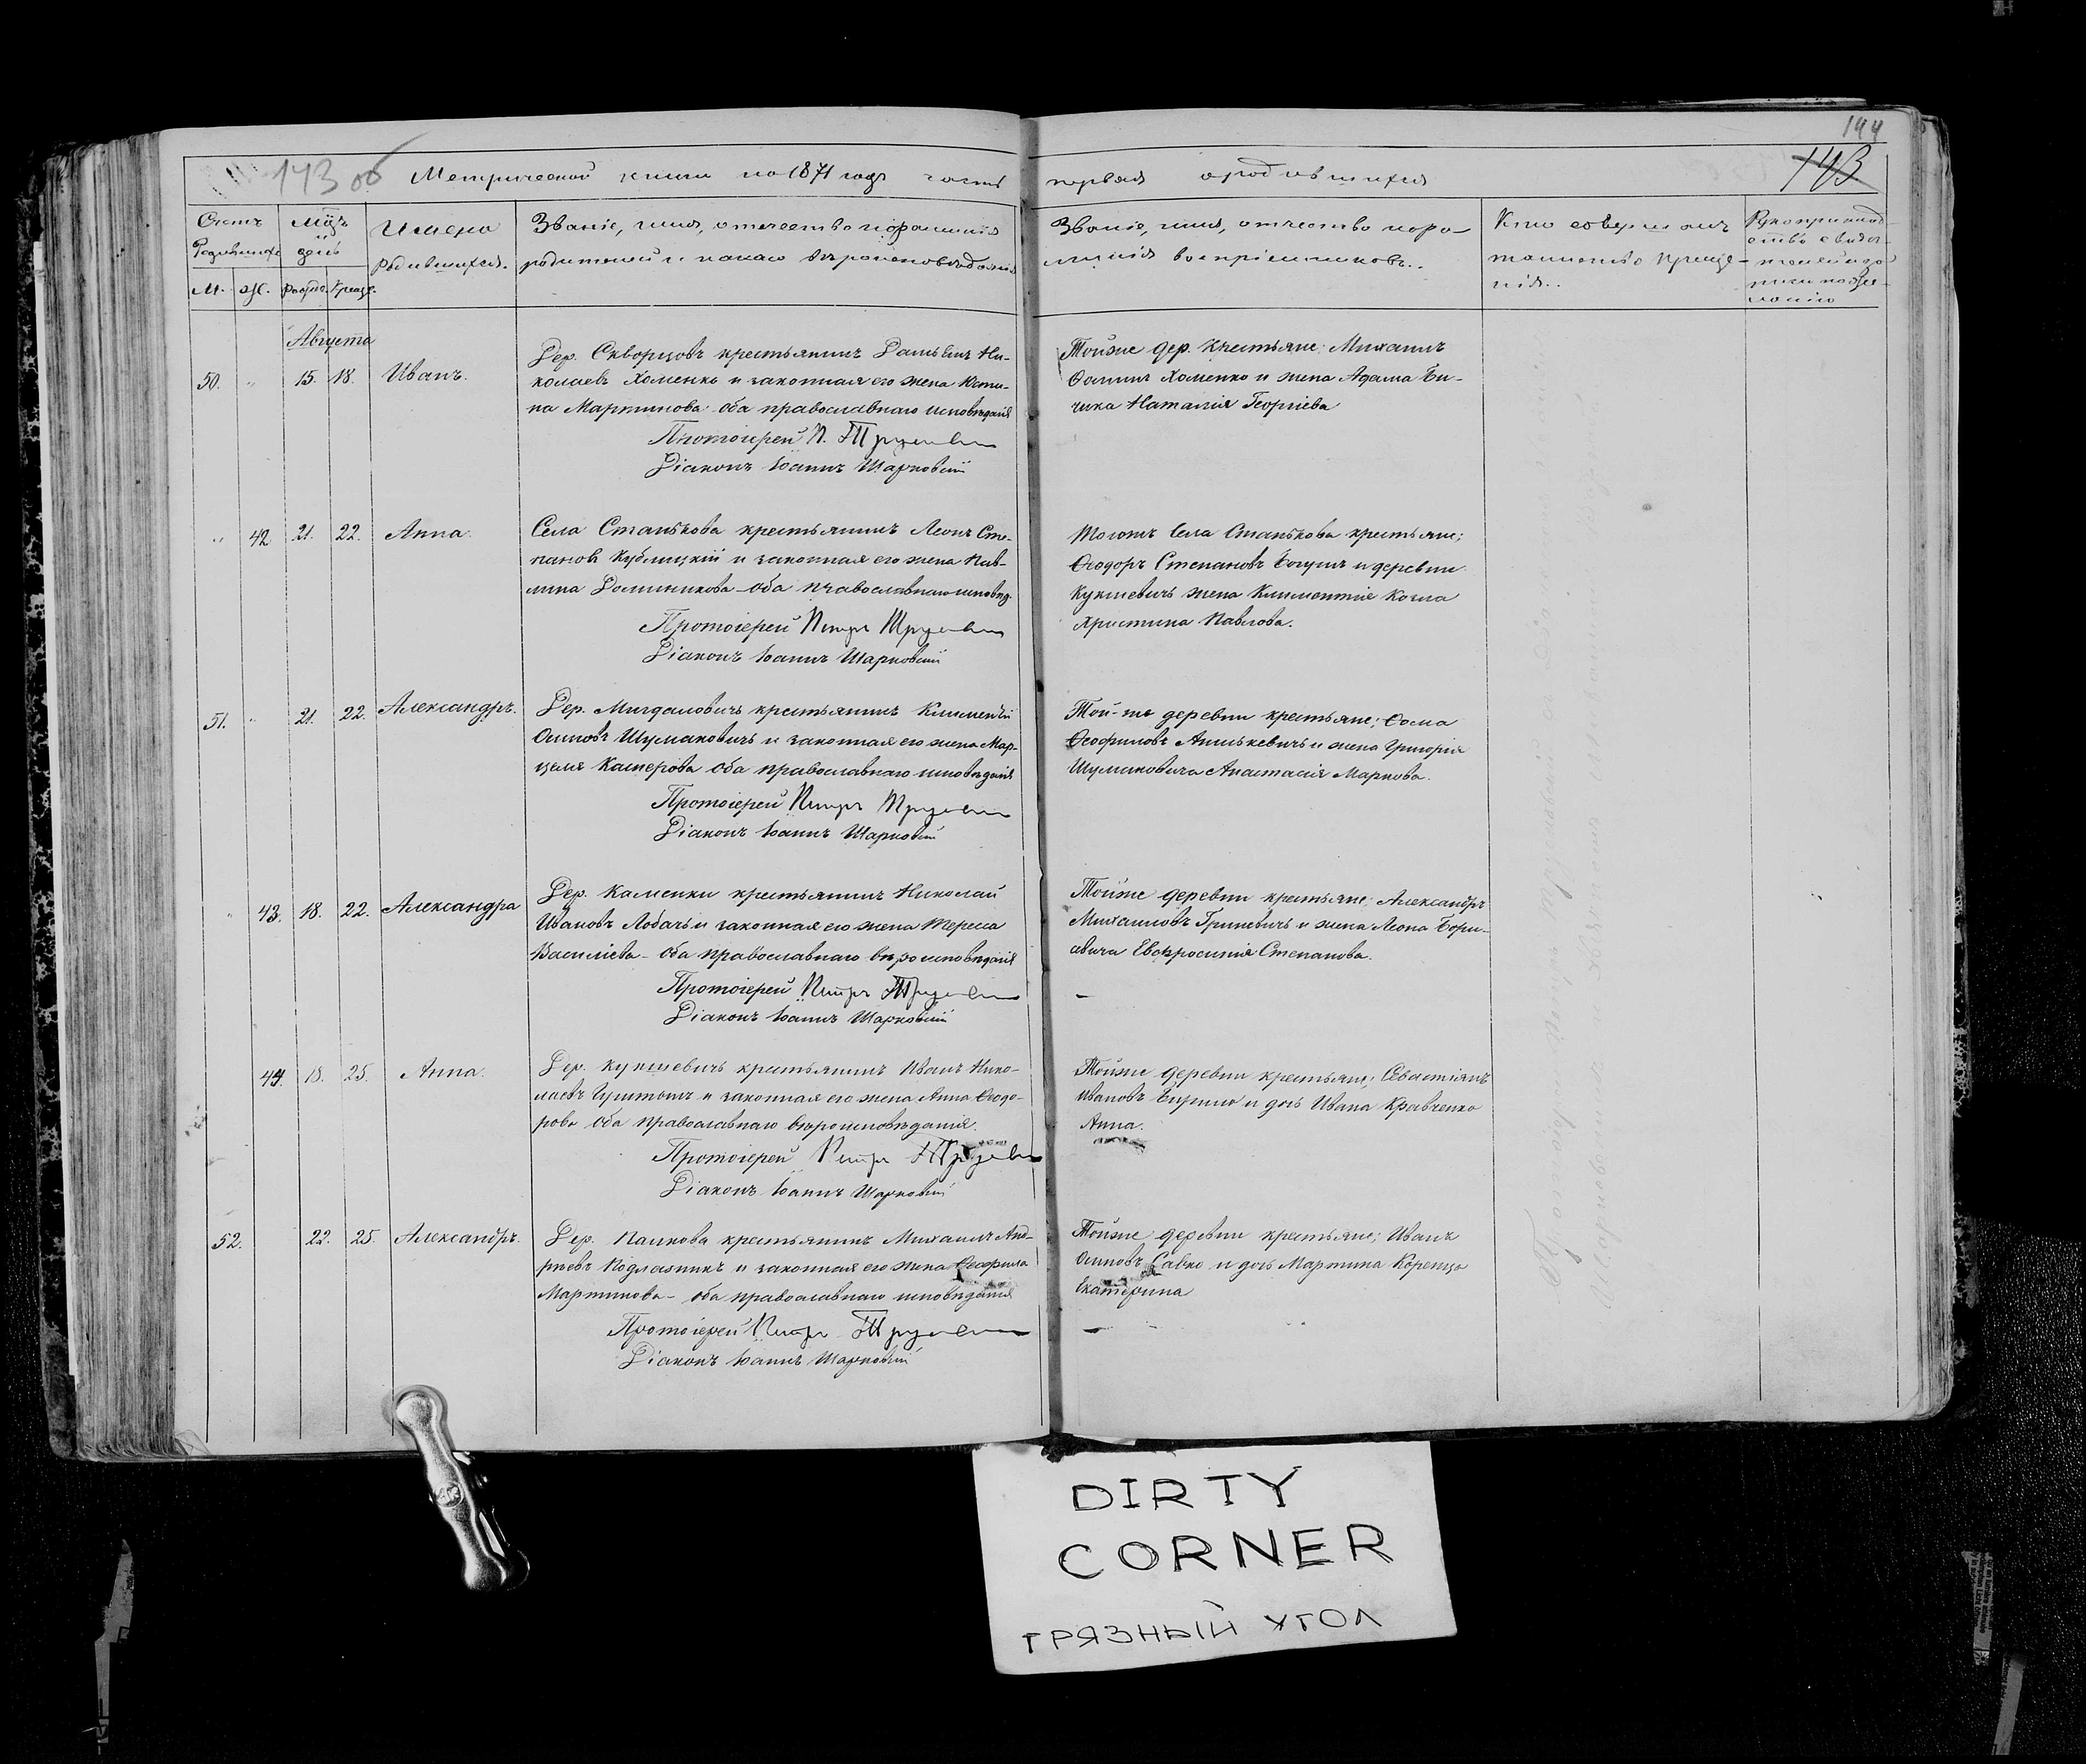 144
143 об Метрической книги на 1871 годъ часть первая о родившихся
143
Счетъ Родившихся
М. Ж.
Мѣсяцъ и день
Рожд. Крещ.
Имена
родившихся.
Званіе, имя, отчество и фамилія
родителей и какого вѣроисповѣданія
Званіе, имя, отчество и фа-
милія воспріемниковъ..
Кто совершалъ
таинство креще-
нія..
Рукоприклад-
ство свидѣ-
телей о за-
писи по же-
ланію
Августа
50. " 15. 18. Иванъ.
Дер. Скворцовъ крестьянинъ Даніилъ Ни-
колаевъ Хоменко и законная его жена Юсти-
на Мартинова оба православнаго исповѣданія
Протоіерей П.
Діаконъ Іоаннъ Шарковскій
Тойже дер. крестьяне: Михаилъ
Хоменко и жена Адама
Наталія Георгіева
" 42. 21. 22. Анна.
Села Станькова крестьянинъ Леонъ Сте-
пановъ Кублицкій и законная его жена Пав-
лина Доминикова оба православнаго исповѣд.
Протоіерей Петръ
Діаконъ Іоаннъ Шарковскій
Тогожъ Села Станькова крестьяне;
Ѳеодоръ Степановъ Богушъ и деревни
Кукшевичъ жена Климентія Козла
Христина Павлова.
51. " 21. 22. Александръ.
Дер. Мигдаловичъ крестьянинъ Климентій
Осиповъ Шумаковичъ и законная его жена Мар-
целя Касперова оба православнаго исповѣданія
Протоіерей Петръ
Діаконъ Іоаннъ Шарковскій
Той-же деревни крестьяне; Ѳома
Ѳеофиловъ и жена Григорія
Шумаковича Анастасія Маркова.
" 43. 18. 22. Александра
Дер. Каменки крестьянинъ Николай
Ивановъ Лобачъ и законная его жена Тереса
Василіева – оба православнаго вѣроисповѣданія
Протоіерей Петръ
Діаконъ Іоаннъ Шарковскій
Тойже деревни крестьяне: Александръ
Михаиловъ Гриневичъ и жена Леона Бори-
севича Евфросинія Степанова.
44. 18. 25. Анна.
Дер. Кукшевичъ крестьянинъ Иванъ Нико-
лаевъ и законная его жена Анна Ѳеодо-
рова оба православнаго вѣроисповѣданія.
Протоіерей Петръ
Діаконъ Іоаннъ Шарковскій
Тойже деревни крестьяне; Севастіянъ
Ивановъ и дочь Ивана Кравченко
Анна.
52. 22. 25. Александръ.
Дер. Палкова крестьянинъ Михаилъ Анд-
реевъ Подлазникъ и законная его жена Ѳеофила
Мартинова – оба православнаго исповѣданія
Протоіерей Петръ
Діаконъ Іоаннъ Шарковскій
Тойже деревни крестьяне; Иванъ
Осиповъ Савко и дочь Мартина
Екатерина
DIRTY
CORNER
ГРЯЗНЫЙ УГОЛ